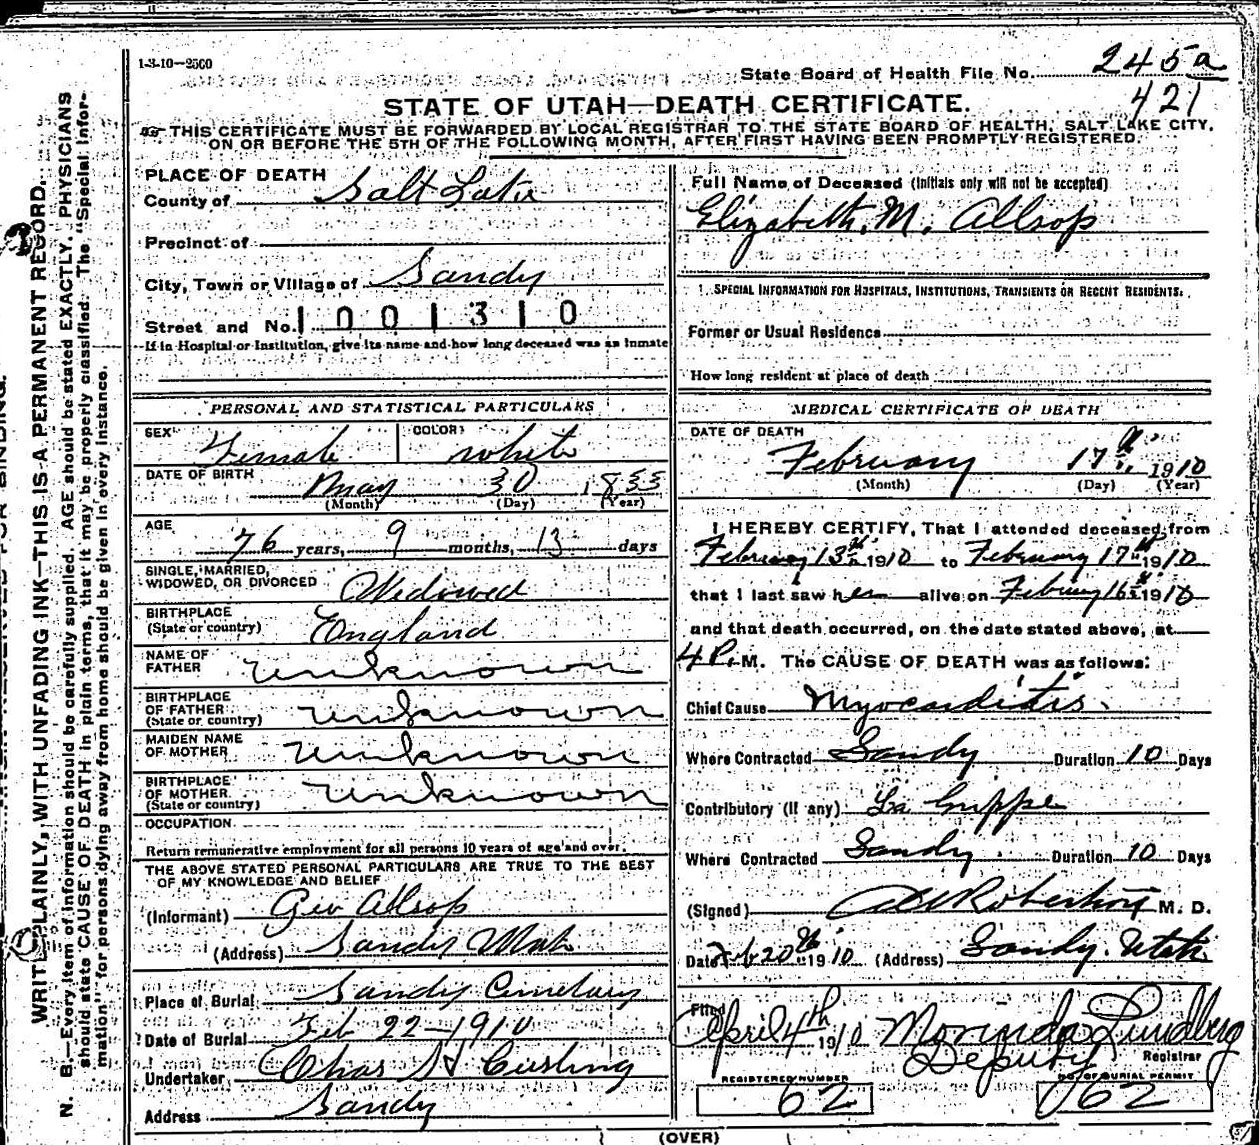 1-3-10—2500
State Board of Health File No. 245a
421
STATE OF UTAH—DEATH CERTIFICATE.
THIS CERTIFICATE MUST BE FORWARDED BY LOCAL REGISTRAR TO THE STATE BOARD OF HEALTH, SALT LAKE CITY,
ON OR BEFORE THE 5TH OF THE FOLLOWING MONTH, AFTER FIRST HAVING BEEN PROMPTLY REGISTERED.
WRITE PLAINLY, WITH UNFADING INK—THIS IS A PERMANENT RECORD.
N. B.—Every item of information should be carefully supplied. AGE should be stated EXACTLY. PHYSICIANS
should state CAUSE OF DEATH in plain terms, that it may be properly classified. The "Special Infor-
mation" for persons dying away from home should be given in every instance.
PLACE OF DEATH
County of Salt Lake
Precinct of
City, Town or Village of Sandy
Street and No. 1001310
If in Hospital or Institution, give its name and how long deceased was an Inmate
PERSONAL AND STATISTICAL PARTICULARS
SEX Female COLOR white
DATE OF BIRTH May 30 1833
(Month) (Day) (Year)
AGE 76 years, 9 months, 13 days
SINGLE, MARRIED,
WIDOWED, OR DIVORCED Widowed
BIRTHPLACE
(State or country) England
NAME OF
FATHER unknown
BIRTHPLACE
OF FATHER
(State or country) unknown
MAIDEN NAME
OF MOTHER unknown
BIRTHPLACE
OF MOTHER
(State or country) unknown
OCCUPATION
Return remunerative employment for all persons 10 years of age and over.
THE ABOVE STATED PERSONAL PARTICULARS ARE TRUE TO THE BEST
OF MY KNOWLEDGE AND BELIEF
(Informant) Geo Allsop
(Address) Sandy Utah
Place of Burial Sandy Cemetary
Date of Burial Feb 22—1910
Undertaker Chas H Cushing
Address Sandy
Full Name of Deceased (Initials only will not be accepted)
Elizabeth. M. Allsop
SPECIAL INFORMATION FOR HOSPITALS, INSTITUTIONS, TRANSIENTS OR RECENT RESIDENTS.
Former or Usual Residence
How long resident at place of death
MEDICAL CERTIFICATE OF DEATH
DATE OF DEATH
February 17th 1910
(Month) (Day) (Year)
I HEREBY CERTIFY, That I attended deceased from
February 13th 1910 to February 17th 1910
that I last saw her alive on February 16th 1910
and that death occurred, on the date stated above, at
4 P. M. The CAUSE OF DEATH was as follows:
Chief Cause Myocarditis.
Where Contracted Sandy Duration 10 Days
Contributory (if any) La Grippe
Where Contracted Sandy. Duration 10 Days
(Signed) Robertson M. D.
Date Feb 20th 1910 (Address) Sandy. Utah.
Filed
April 4th 1910 Morinda Lundberg
Deputy Registrar
REGISTERED NUMBER NO. OF BURIAL PERMIT
62 62
(OVER)